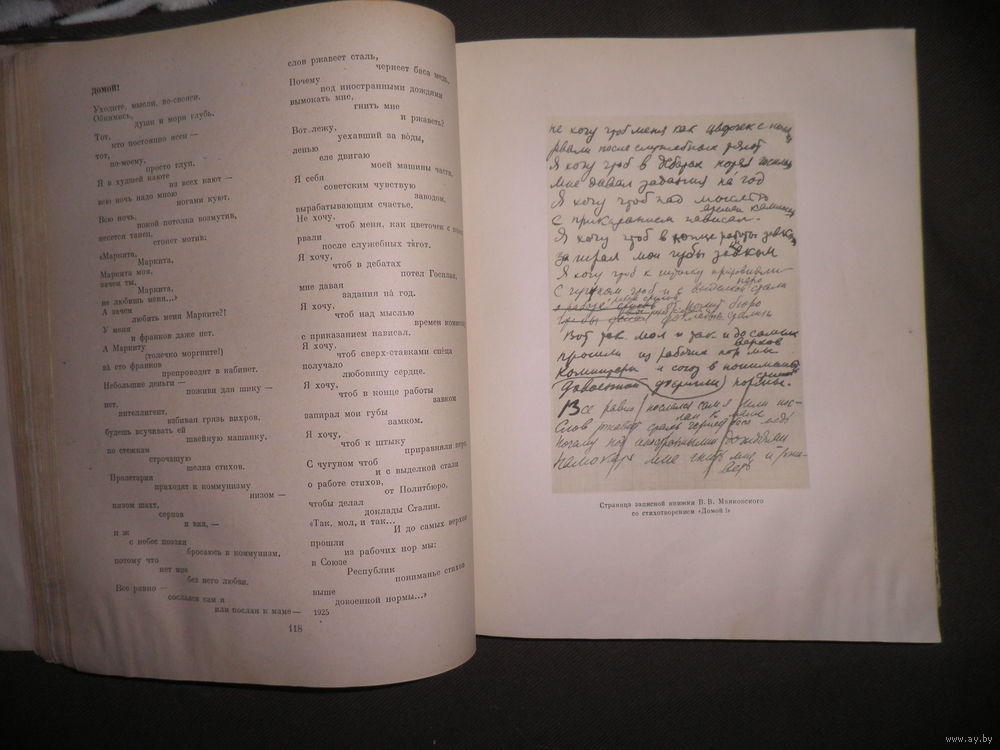 ДОМОЙ!
Уходите, мысли, во-свояси.
Обнимись,
души и моря глубь.
Тот,
кто постоянно ясен —
тот,
по-моему,
просто глуп.
Я в худшей каюте
из всех кают —
всю ночь надо мною
ногами куют.
Всю ночь,
покой потолка возмутив,
несется танец,
стонет мотив:
«Маркита,
Маркита,
Маркита моя,
зачем ты,
Маркита,
не любишь меня...»
А зачем
любить меня Марките?!
У меня
и франков даже нет.
А Маркиту
(толечко моргните!)
за сто франков
препроводят в кабинет.
Небольшие деньги —
поживи для шику —
нет,
интеллигент,
взбивая грязь вихров,
будешь всучивать ей
швейную машинку,
по стежкам
строчащую
шелка стихов.
Пролетарии
приходят к коммунизму
низом —
низом шахт,
серпов
и вил, —
я ж
с небес поэзии
бросаюсь в коммунизм,
потому что
нет мне
без него любви.
Все равно —
сослался сам я
или послан к маме —
слов ржавеет сталь,
чернеет баса медь.
Почему
под иностранными дождями
вымокать мне,
гнить мне
и ржаветь?
Вот лежу,
уехавший за во́ды,
ленью
еле двигаю
моей машины части.
Я себя
советским чувствую
заводом,
вырабатывающим счастье.
Не хочу,
чтоб меня, как цветочек с
рвали
после служебных тя́гот.
Я хочу,
чтоб в дебатах
потел Госплан,
мне давая
задания на́ год.
Я хочу,
чтоб над мыслью
времен
с приказанием нависал.
Я хочу,
чтоб сверх-ставками спе́ца
получало
любовищу сердце.
Я хочу,
чтоб в конце работы
завком
запирал мои губы
замком.
Я хочу,
чтоб к штыку
приравняли перо.
С чугуном чтоб
и с выделкой стали
о работе стихов,
от Политбюро,
чтобы делал
доклады Сталин.
«Так, мол, и так...
И до самых верхов
прошли
из рабочих нор мы:
в Союзе
Республик
пониманье стихов
выше
довоенной нормы...»
1925
118
не хочу чтоб меня как цветочек с
рвали после служебных тягот
Я хочу чтоб в дебатах потел госплан
мне давая задания на год
Я хочу чтоб над мыслью
времен
с приказанием нависал.
Я хочу чтоб в конце работы завком
запирал мои губы замком
Я хочу чтоб к штыку приравняли
перо
С чугуном чтоб и с выделкой стали
Вот так мол и так и до самых
верхов
прошли из рабочих нор мы
и союз в понимании
стихов
довоенной нормы.
Все равно сослался сам я или пос-
лан к маме
Слов ржавеет сталь чернеет баса медь
Почему под иностранными дождями
вымокать мне гнить мне и ржа-
веть
Страница записной книжки В. В. Маяковского
со стихотворением «Домой!»
www.ay.by